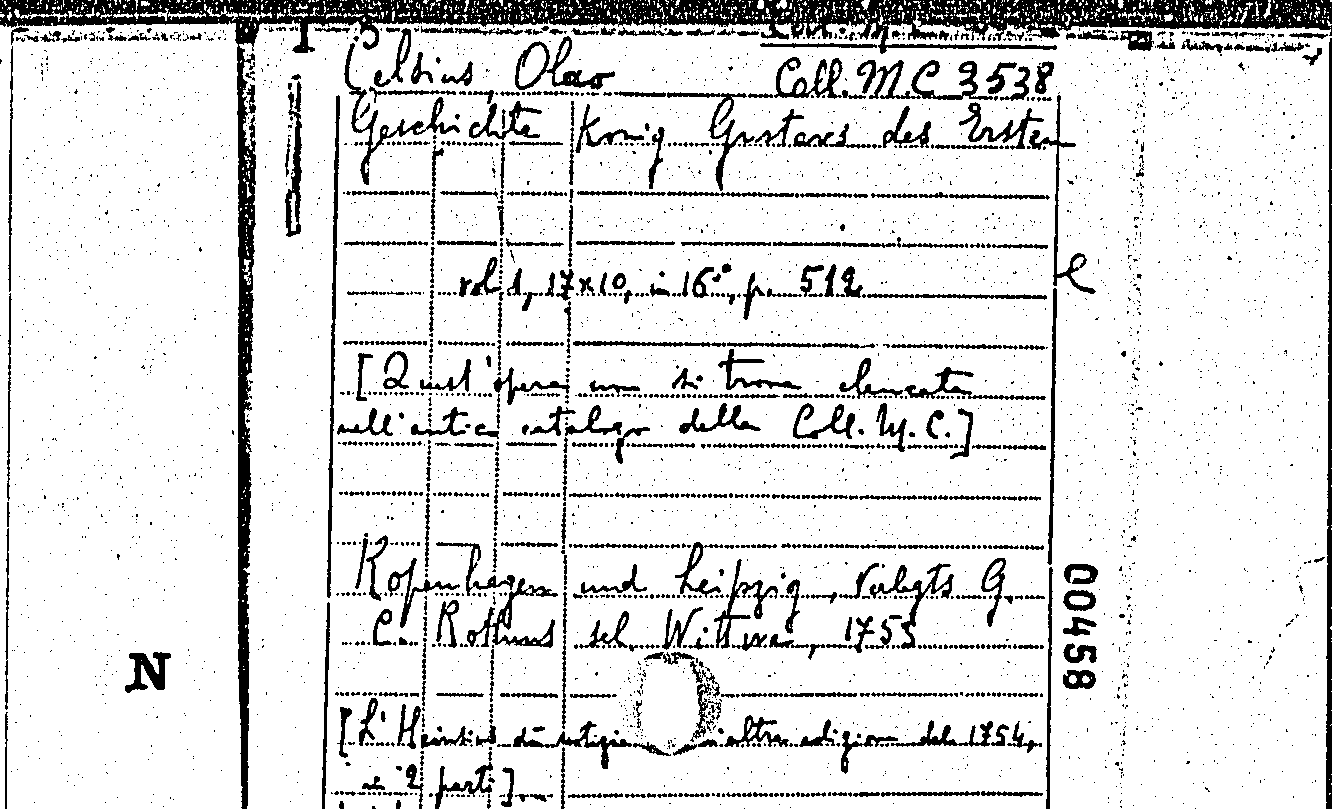 Celsius, Olao
Coll. M.C 3538
Geschichte Konig Gustavs des Ersten
vol 1, 17x10, in 16°, p. 512
[Quest'opera non si trova elencata
nell'antico catalogo della Coll. M. C.]
Kopenhagen und Leipzig, Verlegts G.
C. Rothens sel. Wittwe, 1753
00458
N
[L'Heinsius dà notizia altra edizione del 1754,
in 2 parti].